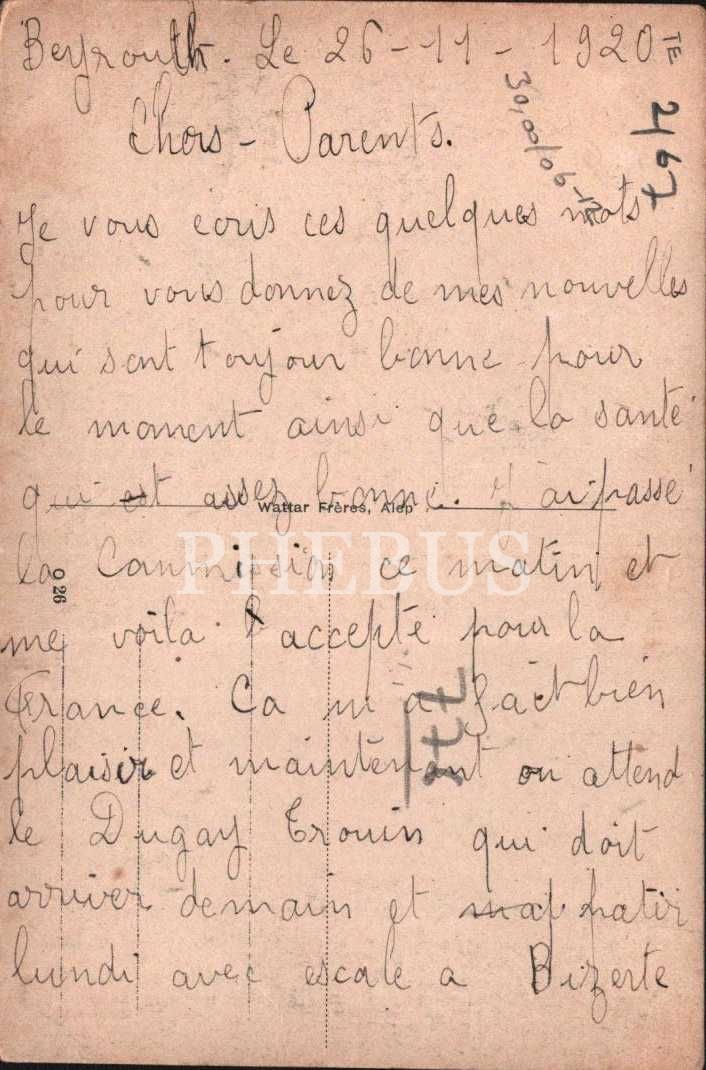 Beyrouth. Le 26-11-1920
TE
2467
Chers - Parents.
Je vous ecris ces quelques mots
pour vous donnez de mes nouvelles
qui sont toujour bonne pour
le moment ainsi que la santé
qui est assez bonne. J'ai passé
Wattar Frères, Alep
la Commission ce matin et
PHEBUS
O 26
me voila accepté pour la
France. Ca m'a fait bien
377
plaisir et maintenant on attend
le Dugay Trouin qui doit
arriver demain et patir
lundi avec escale a Bizerte